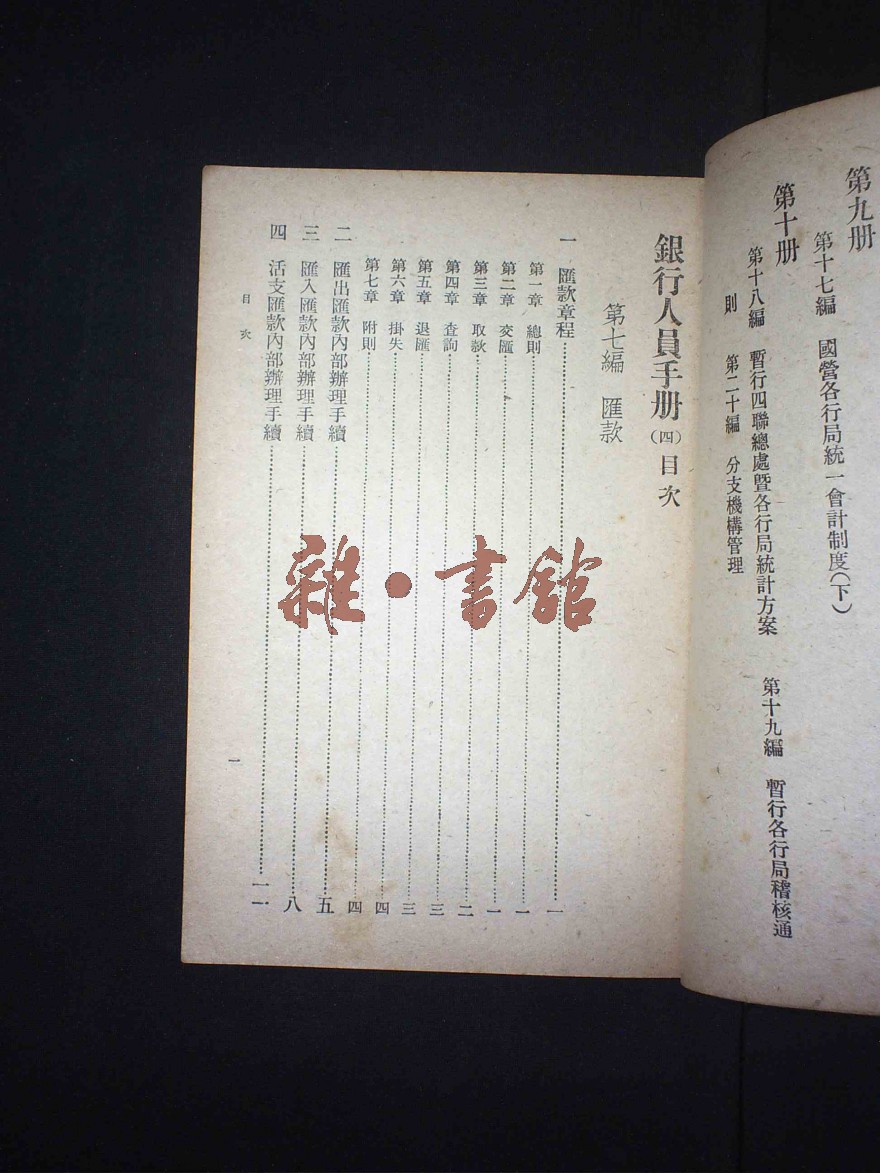 第九册
第十七編　國營各行局統一會計制度(下)
第十册
第十八編　暫行四聯總處暨各行局統計方案　第十九編　暫行各行局稽核通
則　第二十編　分支機構管理
銀行人員手册(四)目次
第七編　匯款
一　匯款章程……一
第一章　總則……一
第二章　交匯……一
第三章　取款……二
第四章　查詢……三
第五章　退匯……三
第六章　掛失……四
第七章　附則……四
二　匯出匯款內部辦理手續……五
三　匯入匯款內部辦理手續……八
四　活支匯款內部辦理手續……一一
目次
一
雜·書館